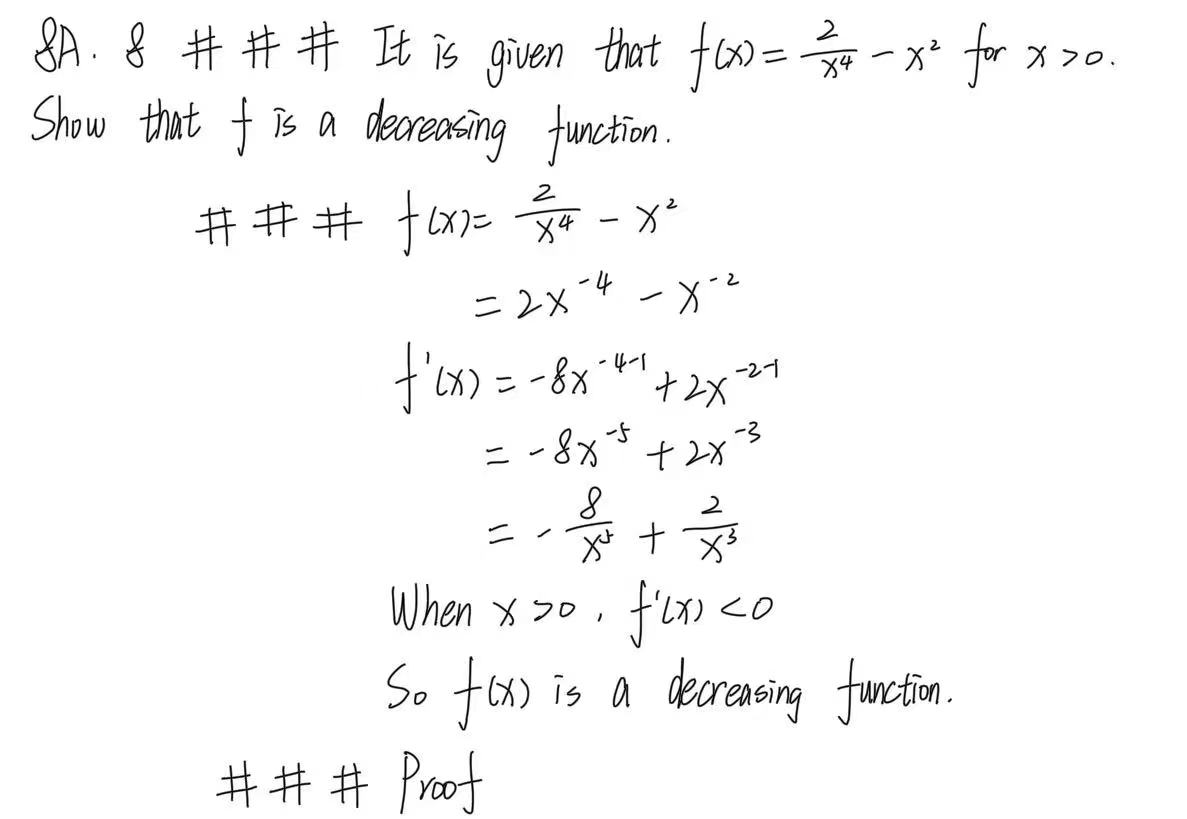 8A. 8 # # # It is given that f(x) = 2/x⁴ - x² for x > 0.
Show that f is a decreasing function.
# # # f(x) = 2/x⁴ - x²
= 2x⁻⁴ - x⁻²
f'(x) = -8x⁻⁴⁻¹ + 2x⁻²⁻¹
= -8x⁻⁵ + 2x⁻³
= -8/x⁵ + 2/x³
When x > 0, f'(x) < 0
So f(x) is a decreasing function.
# # # Proof